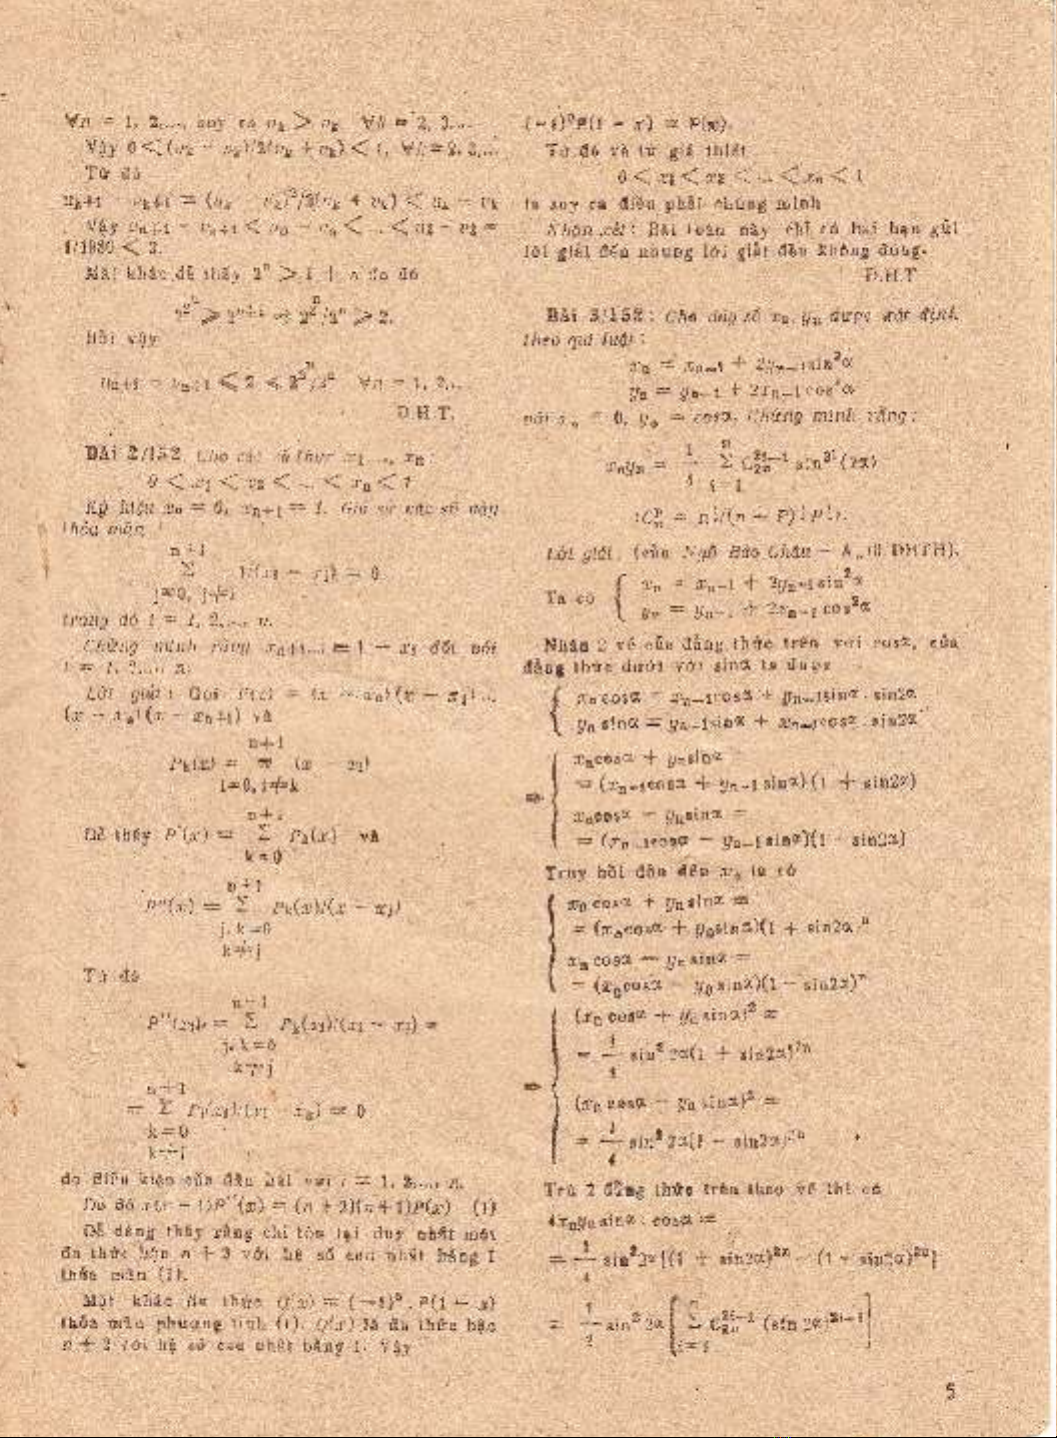 ∀n = 1, 2,..., suy ra u_k > v_k ∀k = 2, 3,...
Vậy 0 < (u_k − v_k)/2(u_k + v_k) < 1, ∀k = 2, 3,...
Từ đó
u_{k+1} − v_{k+1} = (u_k − v_k)²/2(u_k + v_k) < u_k − v_k
Vậy u_{n+1} − v_{n+1} < u_n − v_n < ... < u_2 − v_2 =
1/1980 < 2.
Mặt khác dễ thấy 2^n > 1 + n do đó
2^{2^n} ≥ 2^{n+1} ⇒ 2^{2^n}/2^n ≥ 2.
Bởi vậy
u_{n+1} − v_{n+1} ≤ 2 ≤ 2^{2^n}/2^n ∀n = 1, 2,...
Đ.H.T.
Bài 2/152. Cho các số thực x_1 ..., x_n :
0 < x_1 < x_2 < ... < x_n < 1
Ký hiệu x_0 = 0, x_{n+1} = 1. Giả sử các số này
thỏa mãn :
n+1
Σ 1/(x_i − x_j) = 0
j=0, j≠i
trong đó i = 1, 2,..., n.
Chứng minh rằng x_{n+1−i} = 1 − x_i đối với
i = 1, 2,..., n.
Lời giải : Gọi P(x) = (x − x_0)(x − x_1)...
(x − x_n)(x − x_{n+1}) và
n+1
P_k(x) = π (x − x_i)
i=0, i≠k
n+1
Dễ thấy P'(x) = Σ P_k(x) và
k=0
n+1
P''(x) = Σ P_k(x)/(x − x_j)
j, k=0
k≠j
Từ đó
n+1
P''(x_i) = Σ P_k(x_i)/(x_i − x_j) =
j, k=0
k≠j
n+1
= Σ P_i(x_i)/(x_i − x_k) = 0
k=0
k≠i
do điều kiện của đầu bài với i = 1, 2,..., n.
Do đó x(x − 1)P''(x) = (n + 2)(n+1)P(x) (1)
Dễ dàng thấy rằng chỉ tồn tại duy nhất một
đa thức bậc n + 2 với hệ số cao nhất bằng 1
thỏa mãn (1).
Mặt khác đa thức Q(x) = (−1)^n . P(1 − x)
thỏa mãn phương trình (1). Q(x) là đa thức bậc
n + 2 với hệ số cao nhất bằng 1. Vậy
(−1)^n P(1 − x) = P(x).
Từ đó và từ giả thiết
0 < x_1 < x_2 < ... < x_n < 1
ta suy ra điều phải chứng minh
Nhận xét : Bài toán này chỉ có hai bạn gửi
lời giải đến nhưng lời giải đều không đúng.
Đ.H.T
Bài 3/152 : Cho dãy số x_n, y_n được xác định
theo qui luật :
x_n = x_{n−1} + 2y_{n−1}sin²α
y_n = y_{n−1} + 2x_{n−1}cos²α
với x_0 = 0, y_0 = cosα. Chứng minh rằng :
x_n y_n = 1/4 Σ_{i=1}^{n} C_{2n}^{2i−1} sin^{2i}(2α)
(C_n^p = n!/(n − P)!P!).
Lời giải. (của Ngô Bảo Châu – A_0 ĐHTH).
Ta có { x_n = x_{n−1} + 2y_{n−1}sin²α
y_n = y_{n−1} + 2x_{n−1}cos²α
Nhân 2 vế của đẳng thức trên với cosα, của
đẳng thức dưới với sinα ta được
{ x_n cosα = x_{n−1}cosα + y_{n−1}sinα . sin2α
y_n sinα = y_{n−1}sinα + x_{n−1}cosα . sin2α
x_n cosα + y_n sinα
= (x_{n−1}cosα + y_{n−1}sinα)(1 + sin2α)
⇒ { x_n cosα − y_n sinα =
= (x_{n−1}cosα − y_{n−1}sinα)(1 − sin2α)
Truy hồi dần đến x_0 ta có
{ x_n cosα + y_n sinα =
= (x_0cosα + y_0sinα)(1 + sin2α)^n
x_n cosα − y_n sinα =
= (x_0cosα − y_0 sinα)(1 − sin2α)^n
(x_n cosα + y_n sinα)² =
= 1/4 sin² 2α(1 + sin2α)^{2n}
⇒ { (x_n cosα − y_n sinα)² =
= 1/4 sin² 2α(1 − sin2α)^{2n}
Trừ 2 đẳng thức trên theo vế thì có
4x_n y_n sinα . cosα =
= 1/4 sin²2α[(1 + sin2α)^{2n} − (1 − sin2α)^{2n}]
= 1/4 sin² 2α [ Σ_{i=1} C_{2n}^{2i−1} (sin 2α)^{2i−1} ]
5